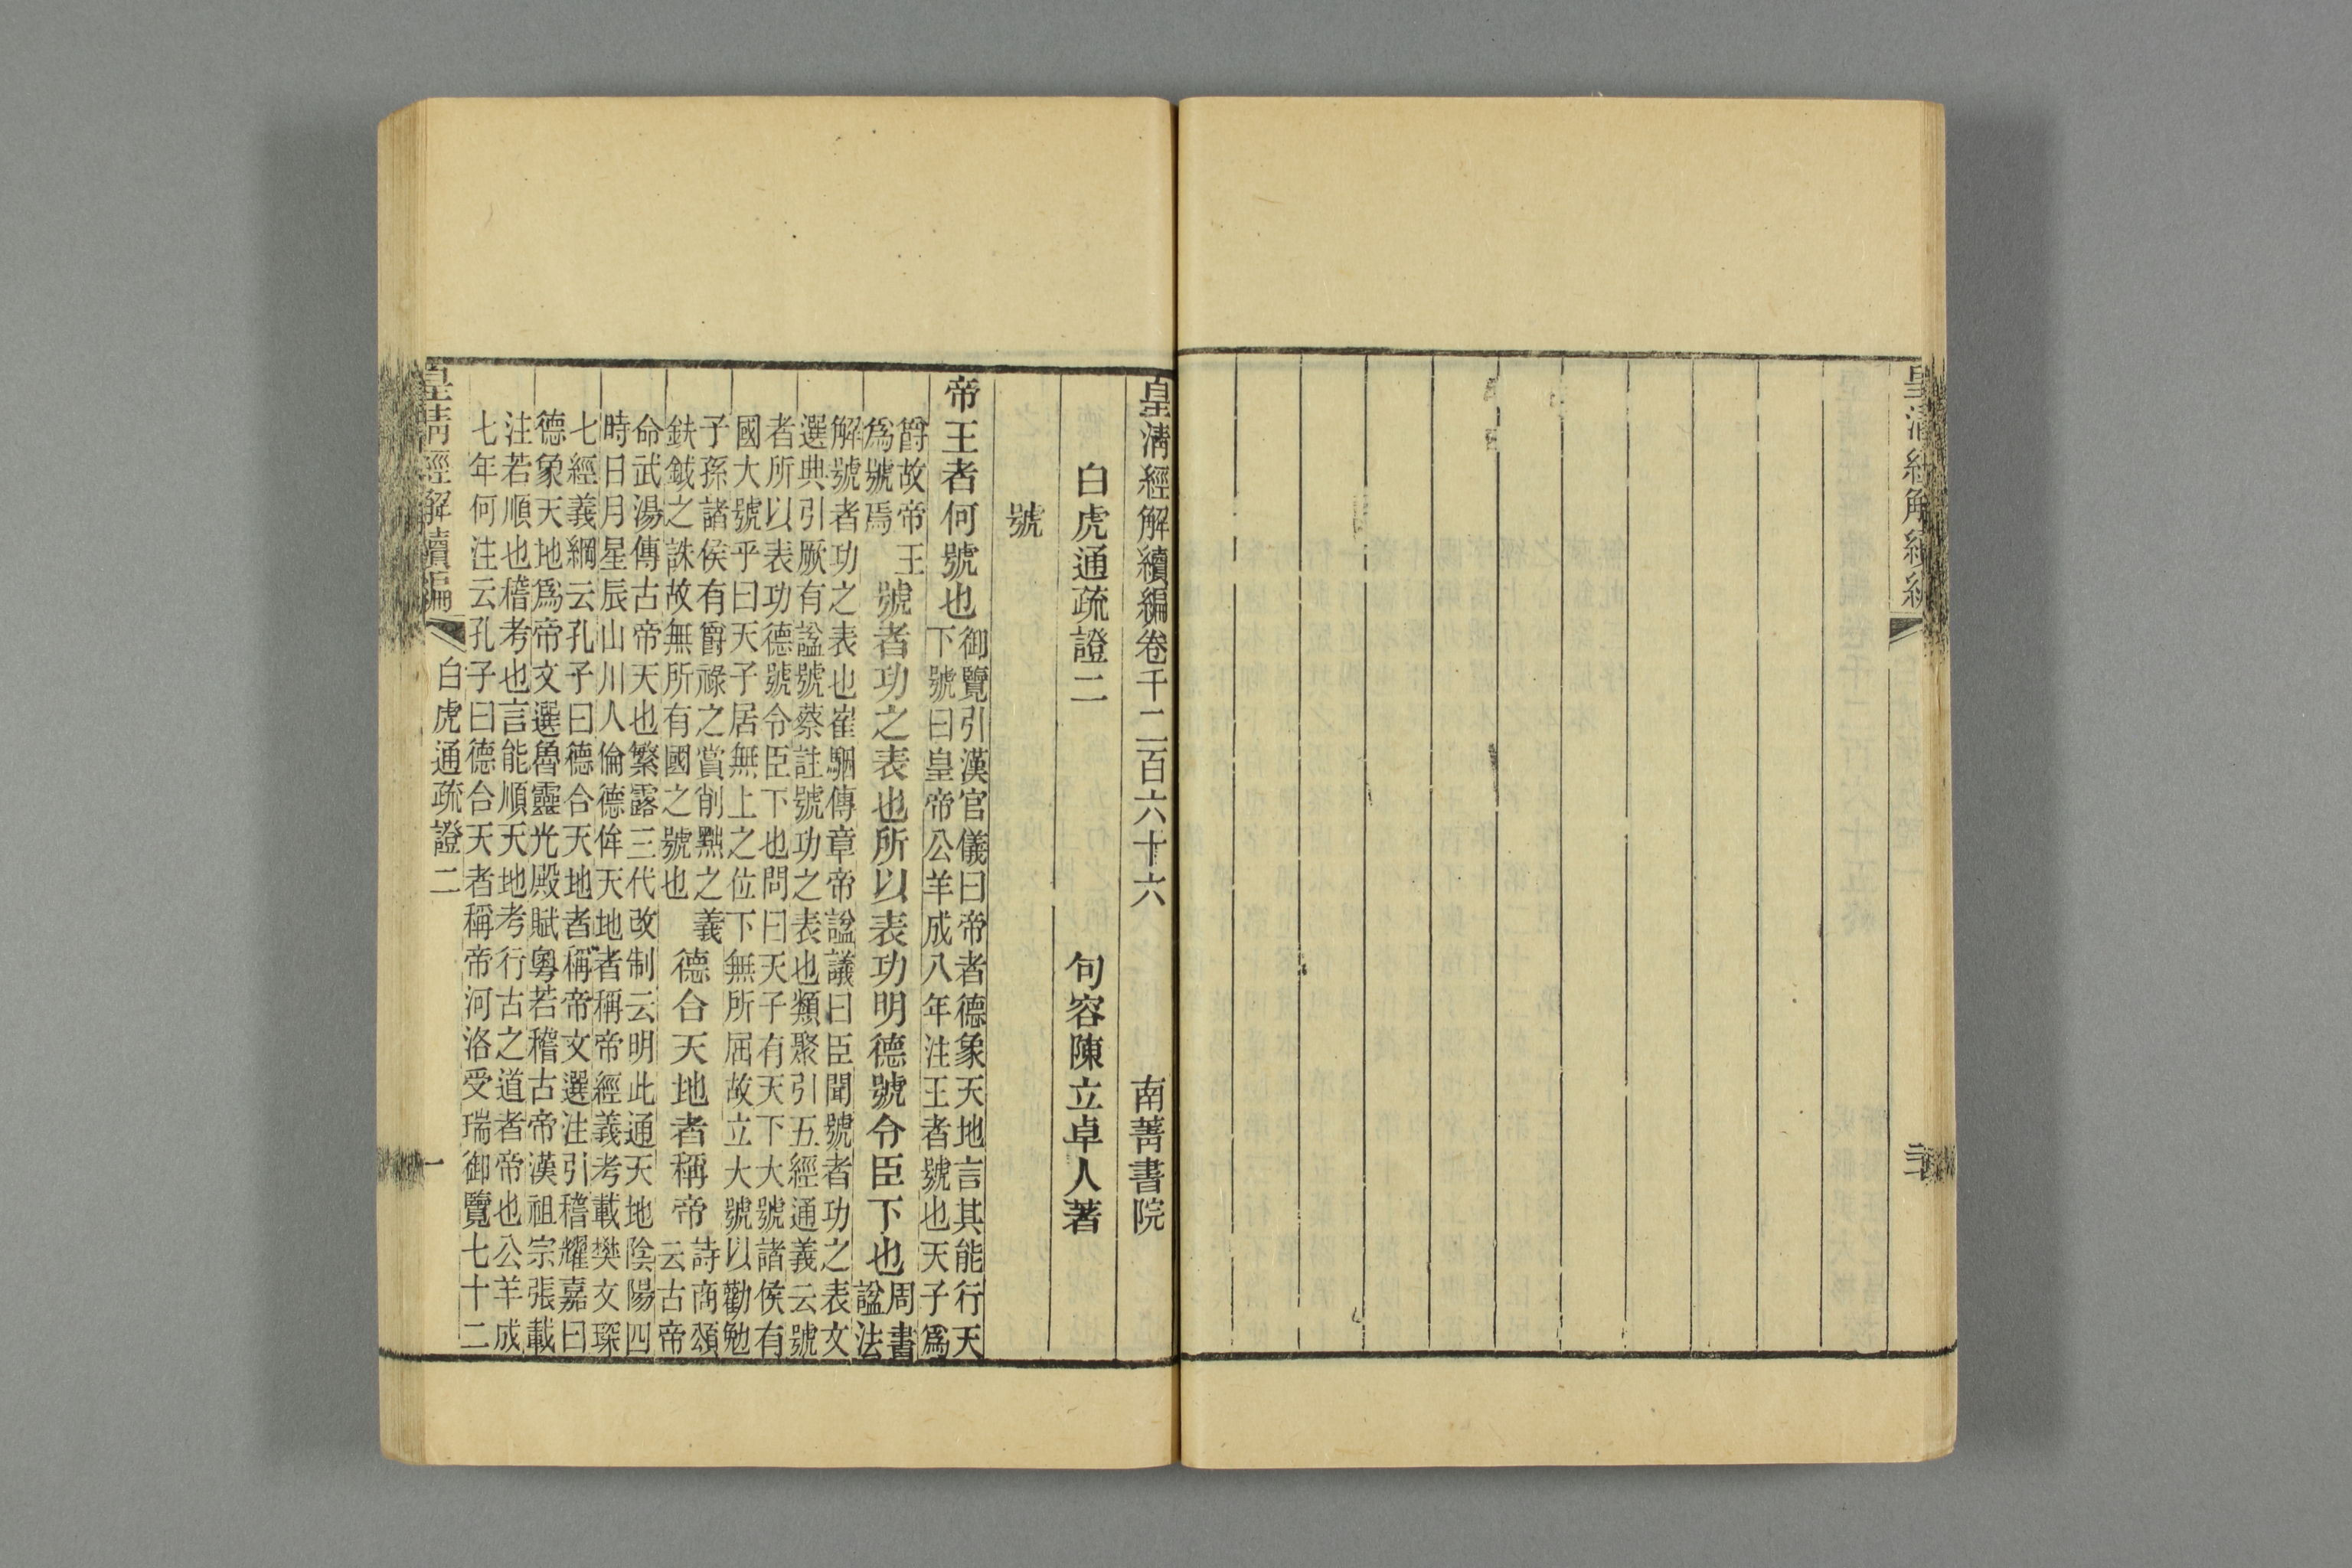 皇清經解續編
皇清經解續編卷千二百六十六 南菁書院
白虎通疏證二 句容陳立卓人著
號
帝王者何號也
御覽引漢官儀曰帝者德象天地言其能行天
下號曰皇帝公羊成八年注王者號也天子爲
爵故帝王
爲號焉
號者功之表也所以表功明德號令臣下也
周書
諡法
解號者功之表也崔駰傳章帝諡議曰臣聞號者功之表文
選典引厥有諡號蔡註號功之表也類聚引五經通義云號
者所以表功德號令臣下也問曰天子有天下大號諸侯有
國大號乎曰天子居無上之位下無所屈故立大號以勸勉
子孫諸侯有爵祿之賞削黜之義
鈇鉞之誅故無所有國之號也
德合天地者稱帝
詩商頌
云古帝
命武湯傳古帝天也繁露三代改制云明此通天地陰陽四
時日月星辰山川人倫德侔天地者稱帝經義考載樊文琛
七經義綱云孔子曰德合天地者稱帝文選注引稽耀嘉曰
德象天地爲帝文選魯靈光殿賦粵若稽古帝漢祖宗張載
注若順也稽考也言能順天地考行古之道者帝也公羊成
七年何注云孔子曰德合天者稱帝河洛受瑞御覽七十二
皇清經解續編 白虎通疏證二 一